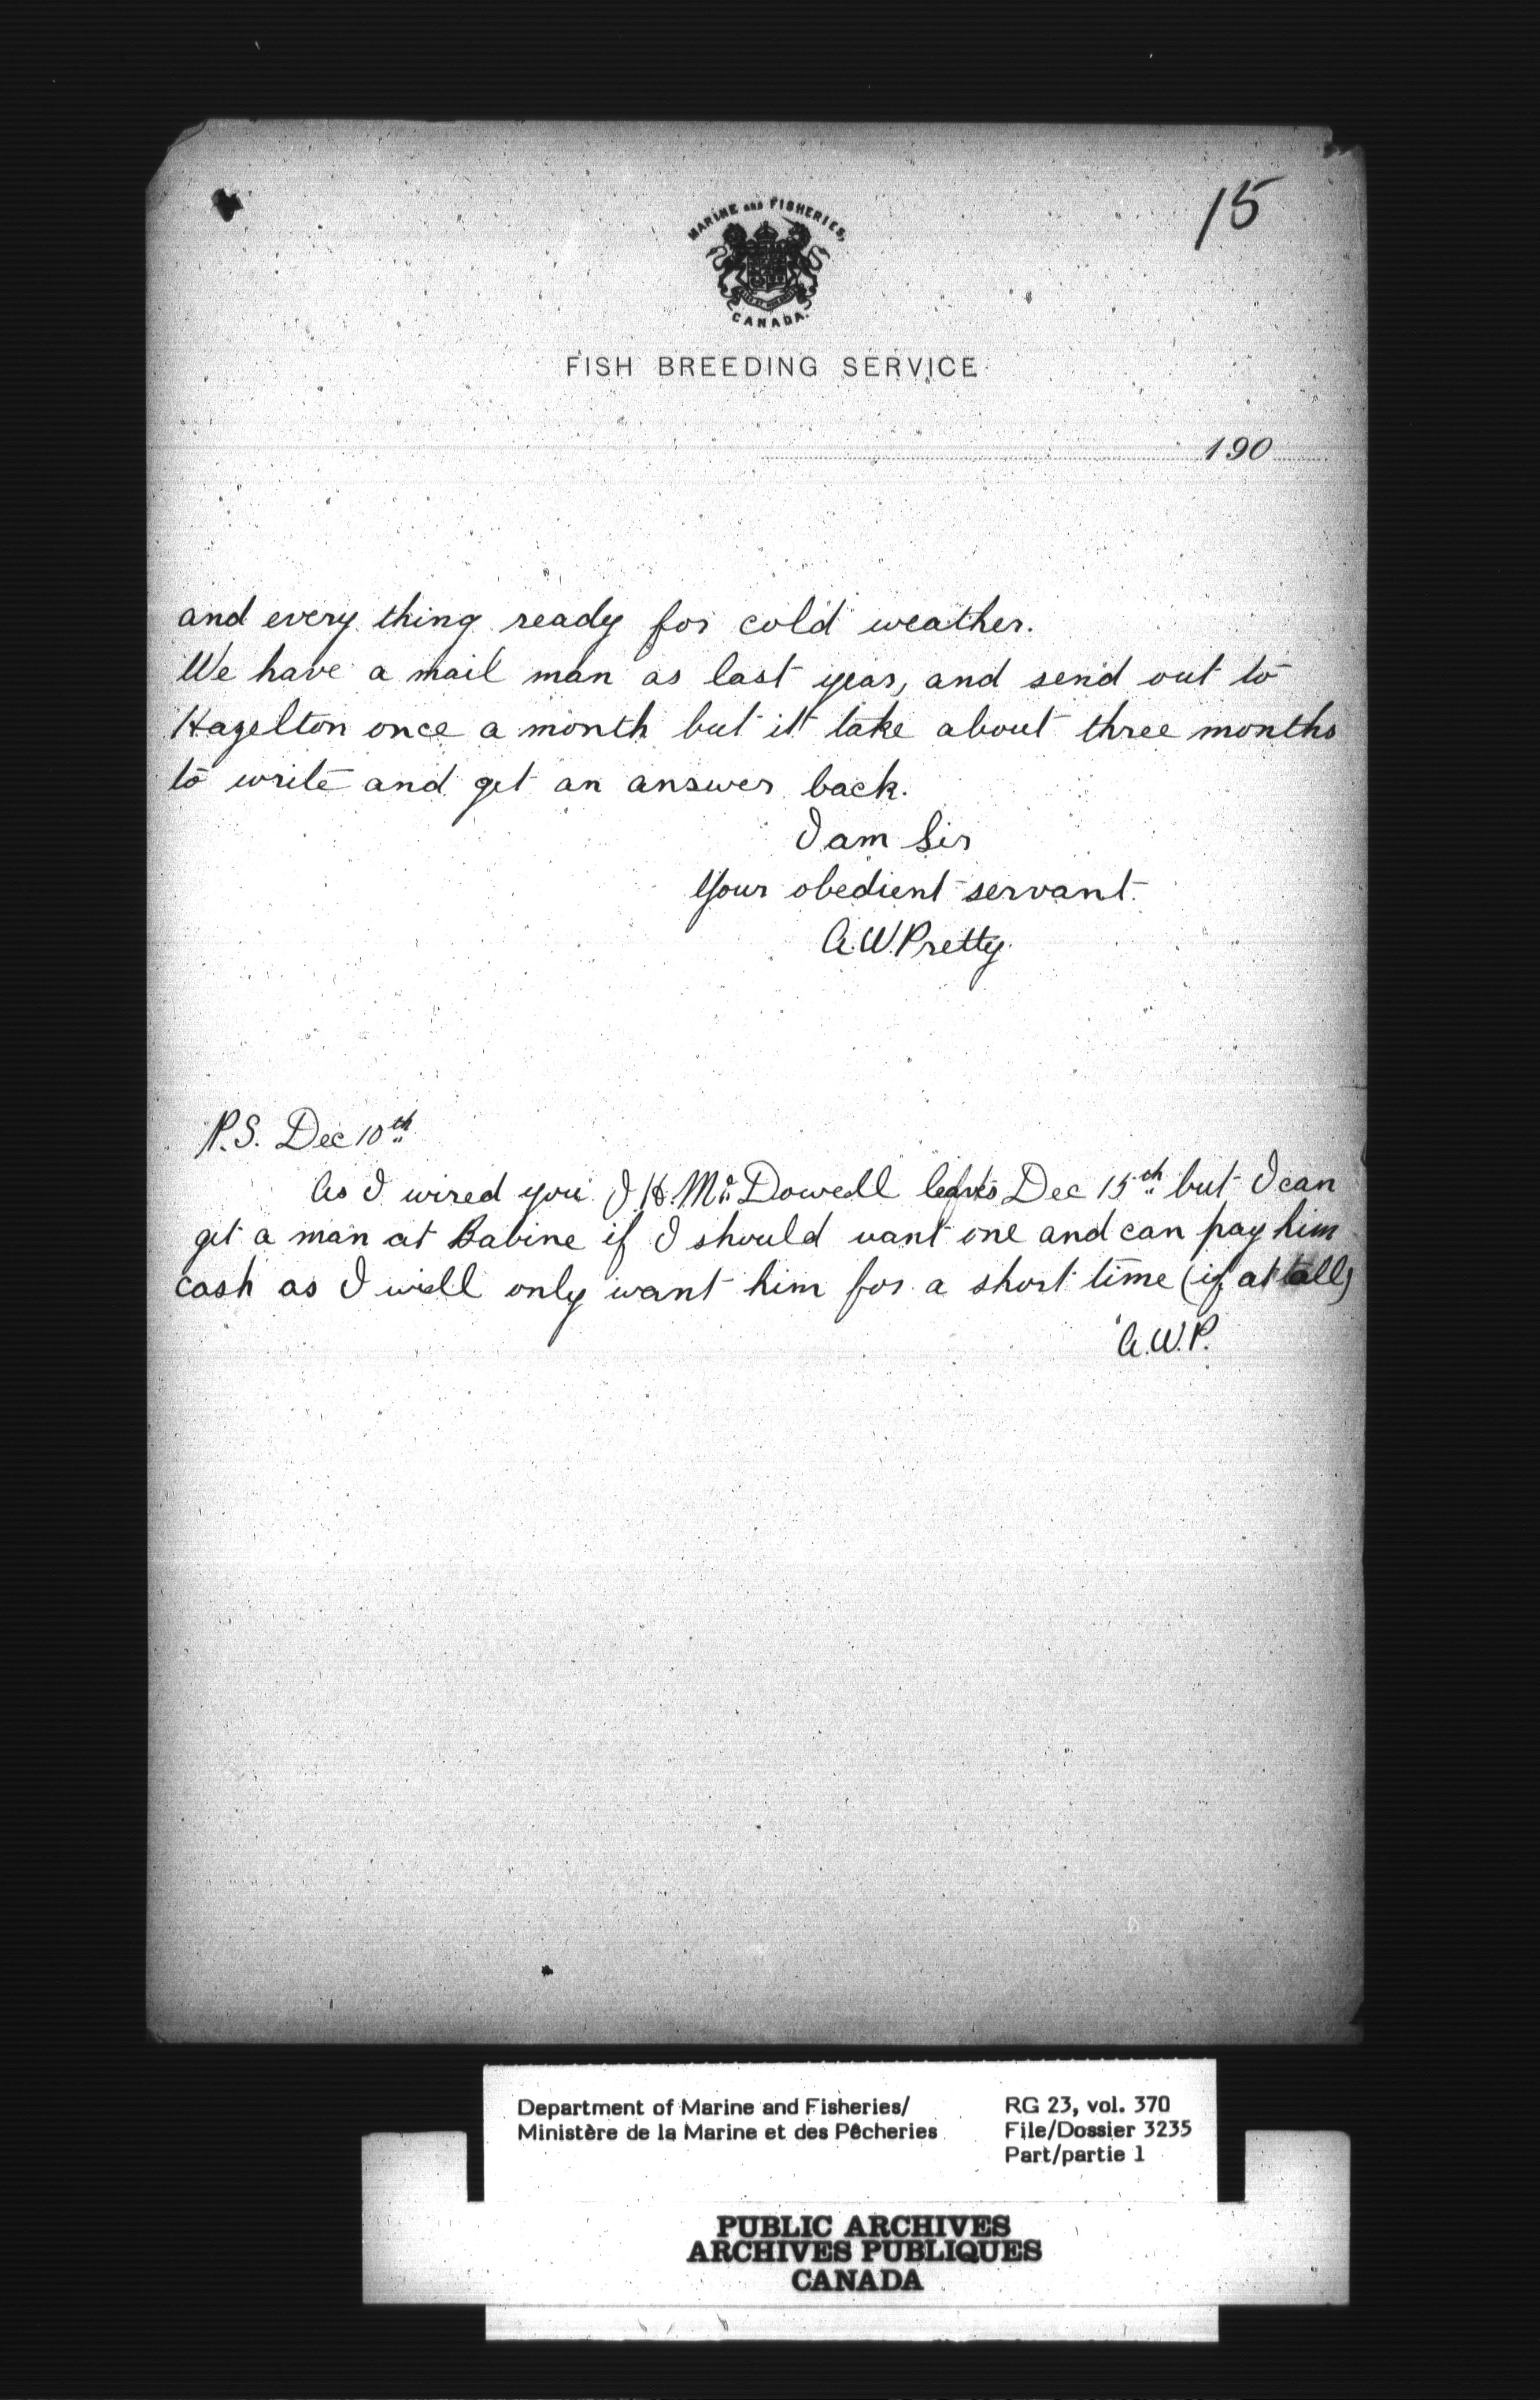 15
MARINE AND FISHERIES,
CANADA.
FISH BREEDING SERVICE
190
and every thing ready for cold weather.
We have a mail man as last year, and send out to
Hazelton once a month but it take about three months
to write and get an answer back.
I am Sir
Your obedient servant.
A.W. Pretty.
P.S. Dec 10th
As I wired you J H. Mc Dowell leaves Dec 15th but I can
get a man at Babine if I should want one and can pay him
cash as I will only want him for a short time (if at all)
A.W.P.
Department of Marine and Fisheries/
Ministère de la Marine et des Pêcheries
RG 23, vol. 370
File/Dossier 3235
Part/partie 1
PUBLIC ARCHIVES
ARCHIVES PUBLIQUES
CANADA